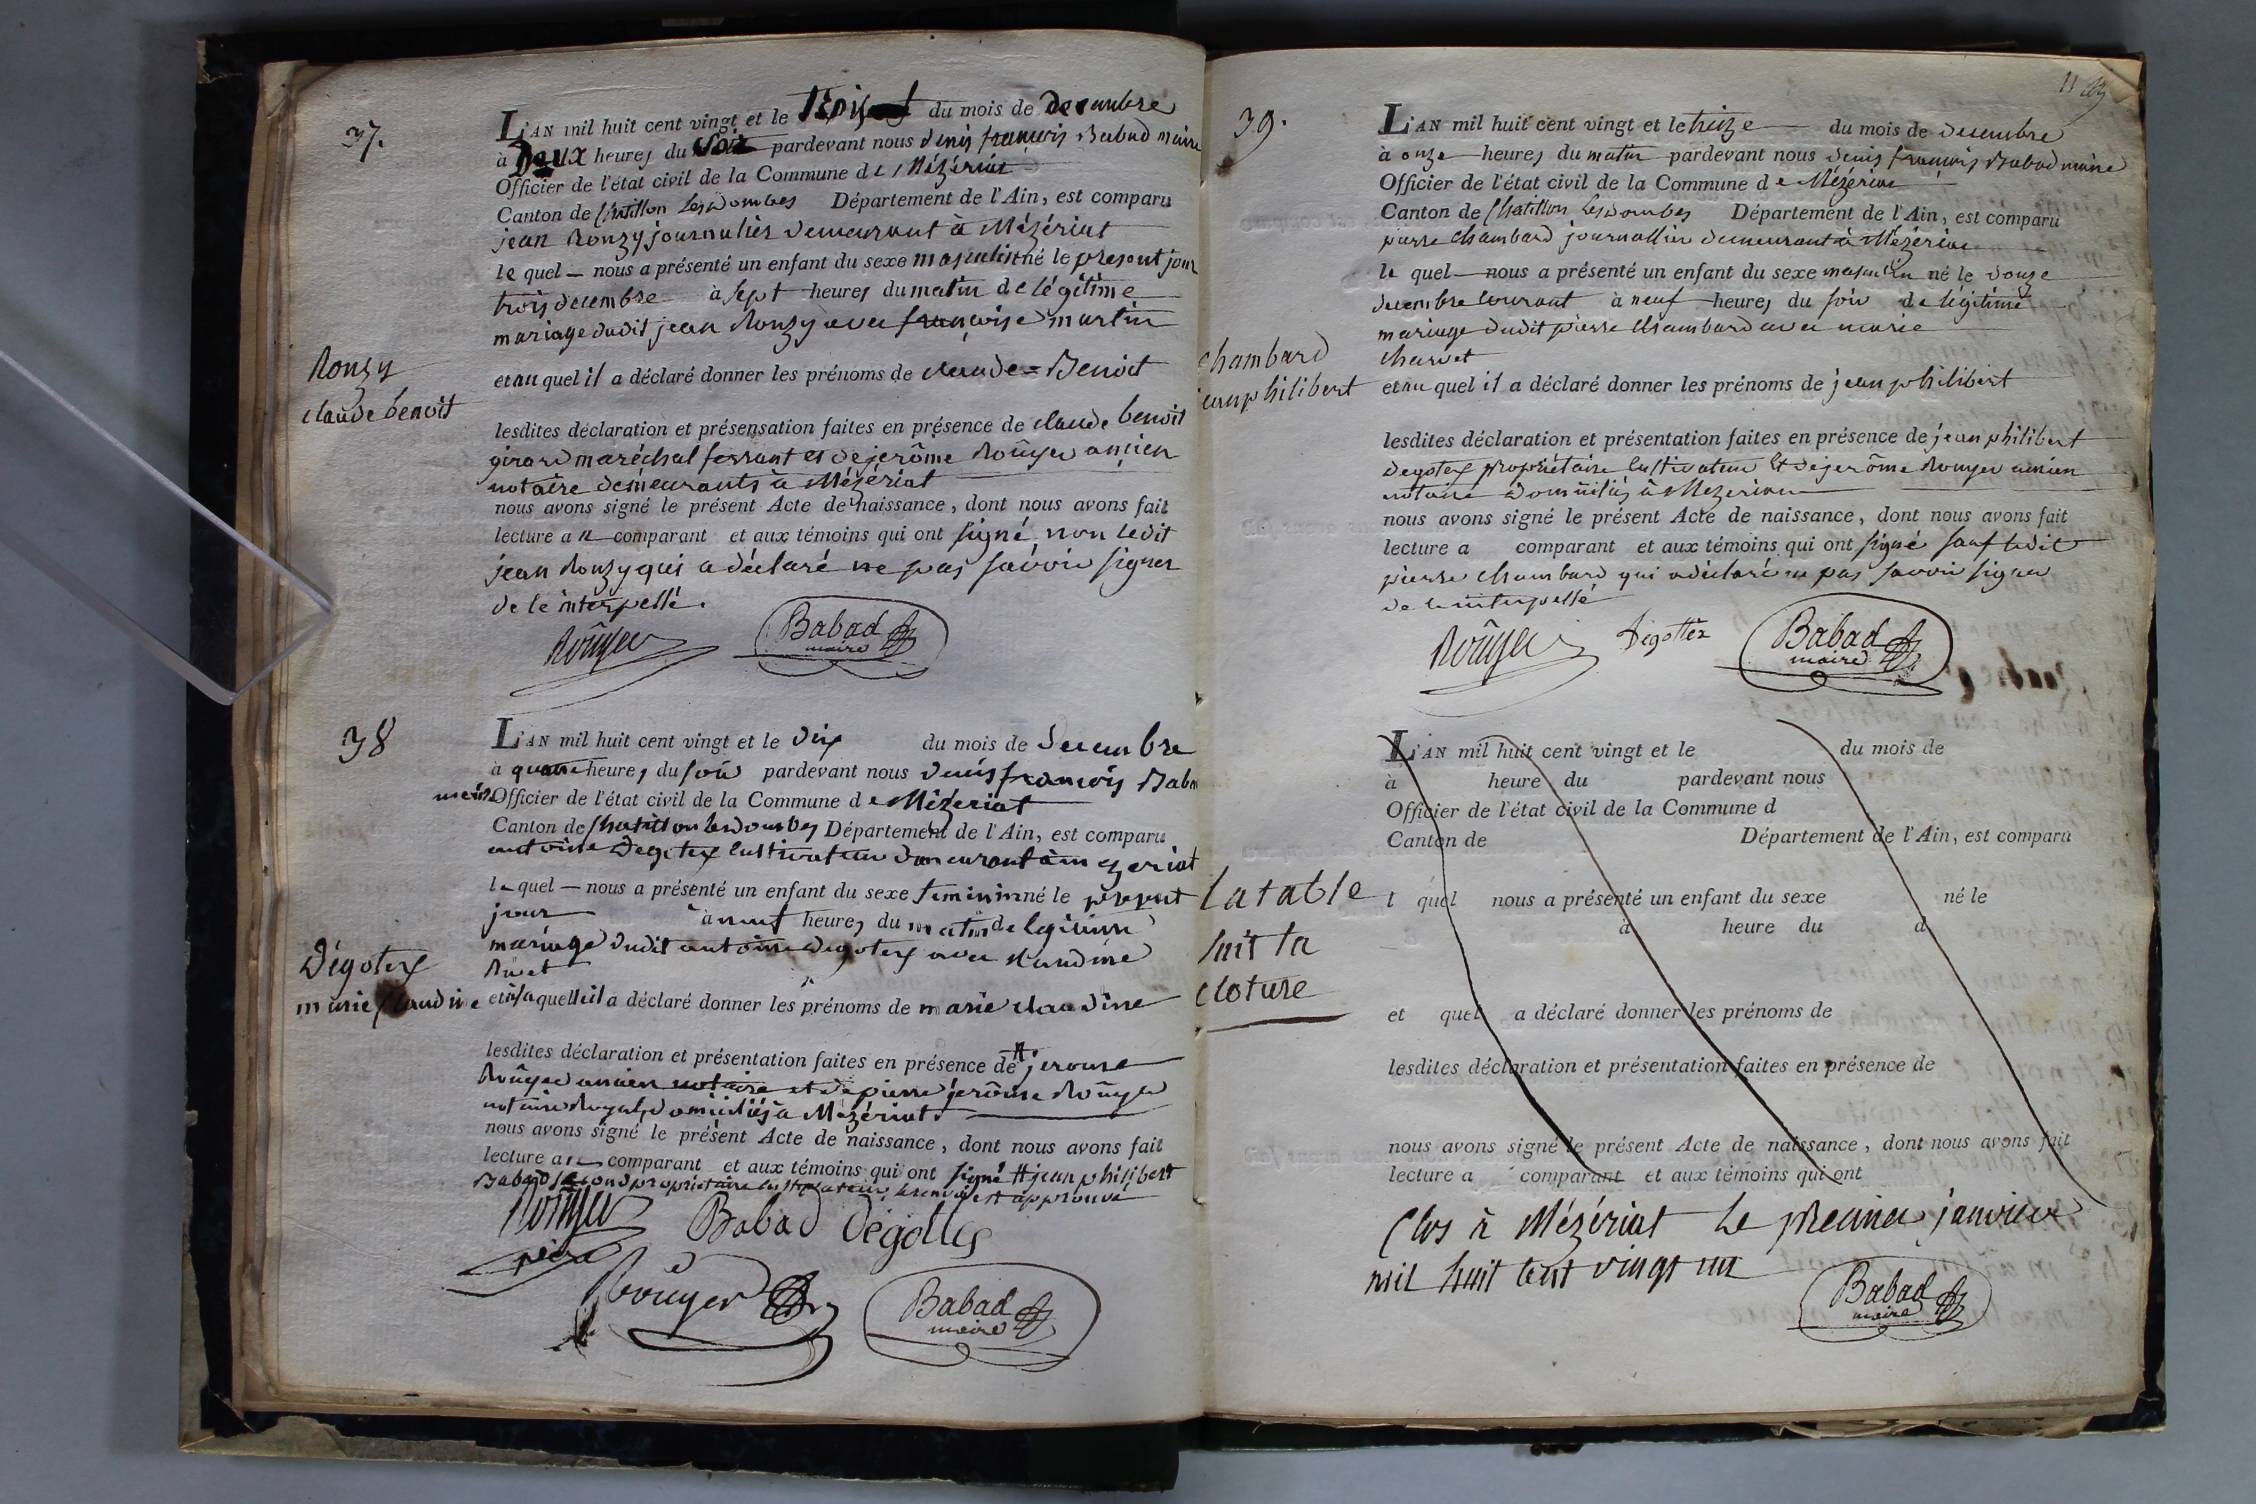 37.
L'AN mil huit cent vingt et le trois du mois de decembre
à Deux heures du soir pardevant nous denis françois Babad maire
Officier de l'état civil de la Commune de Mézériat
Canton de Chatillon Les Dombes Département de l'Ain, est comparu
jean Ronzy journalier demeurant à Mézériat
le quel nous a présenté un enfant du sexe masculin né le present jour
trois decembre à sept heures du matin de légitime
mariage dudit jean Ronzy avec françoise martin
Ronzy
claude benoit
et au quel il a déclaré donner les prénoms de claude = Benoit
lesdites déclaration et présensation faites en présence de claude benoit
girard maréchal ferrant et de jerôme Roûyer ancien
notaire demeurants à Mézériat
nous avons signé le présent Acte de naissance, dont nous avons fait
lecture a u comparant et aux témoins qui ont signé, non ledit
jean Ronzy qui a déclaré ne pas savoir signer
de le interpellé.
Roûyer Babad
maire
38
L'AN mil huit cent vingt et le dix du mois de decembre
à quatre heures du soir pardevant nous denis françois Baba
maire Officier de l'état civil de la Commune de Mézériat
Canton de Chatillon les Dombes Département de l'Ain, est comparu
antoine Degotex cultivateur demeurant à mezeriat
la quel nous a présenté un enfant du sexe feminin né le present
jour à neuf heures du matin de legitime
mariage dudit antoine Degotex avec claudine
Dégotex
marie claudine
et à laquelle il a déclaré donner les prénoms de marie claudine
lesdites déclaration et présentation faites en présence de jerome
Roûyer ancien notaire et de pierre jerôme Roûyer
notaire Royal domiciliés à Mézériat.
nous avons signé le présent Acte de naissance, dont nous avons fait
lecture au comparant et aux témoins qui ont signé # jean philibert
Babad second propriétaire cultivateur, le renvoi est approuvé
Roûyer Babad Dégottex
père
Roûyer Babad
maire
39.
L'AN mil huit cent vingt et le treize du mois de decembre
à onze heures du matin pardevant nous denis françois Babad maire
Officier de l'état civil de la Commune de Mézériat
Canton de Chatillon les Dombes Département de l'Ain, est comparu
pierre Chambard journallier demeurant à Mézériat
le quel nous a présenté un enfant du sexe masculin né le douze
decembre courant à neuf heures du soir de légitime
mariage dudit pierre Chambard avec marie
charvet
chambard
jean philibert
et au quel il a déclaré donner les prénoms de jean philibert
lesdites déclaration et présentation faites en présence de jean philibert
degotex propriétaire cultivateur et de jerôme Rouyer ancien
notaire domiciliés à Mezeriat
nous avons signé le présent Acte de naissance, dont nous avons fait
lecture a comparant et aux témoins qui ont signé sauf ledit
pierre Chambard qui a déclaré ne pas savoir signer
de le interpellé
Roûyer Dégottex Babad
maire
L'AN mil huit cent vingt et le du mois de
à heure du pardevant nous
Officier de l'état civil de la Commune d
Canton de Département de l'Ain, est comparu
l quel nous a présenté un enfant du sexe né le
à heure du d
la table
suit la
cloture
et quel a déclaré donner les prénoms de
lesdites déclaration et présentation faites en présence de
nous avons signé le présent Acte de naissance, dont nous avons fait
lecture a comparant et aux témoins qui ont
Clos à Mézériat le premier janvier
mil huit cent vingt un
Babad
maire